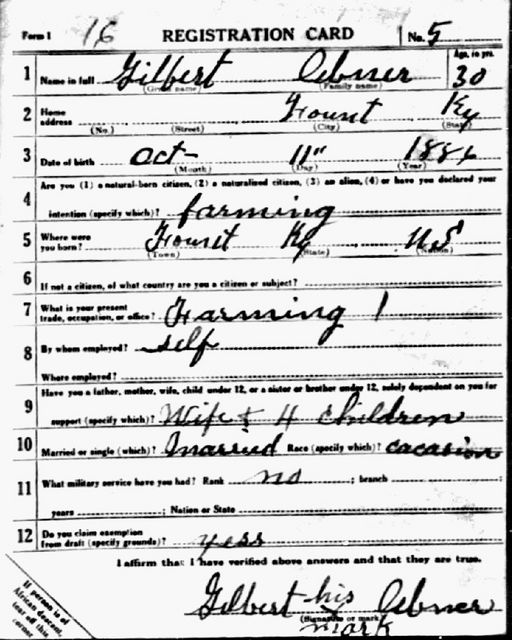 Form 1 16 REGISTRATION CARD No. 5
1 Name in full Gilbert Abner Age, in yrs. 30
(Given name) (Family name)
2 Home address Fount Ky
(No.) (Street) (City) (State)
3 Date of birth Oct- 11" 1886
(Month) (Day) (Year)
4 Are you (1) a natural-born citizen, (2) a naturalized citizen, (3) an alien, (4) or have you declared your
intention (specify which)? farming
5 Where were you born? Fount Ky US
(Town) (State) (Nation)
6 If not a citizen, of what country are you a citizen or subject?
7 What is your present trade, occupation, or office? Farming 1
8 By whom employed? self
Where employed?
9 Have you a father, mother, wife, child under 12, or a sister or brother under 12, solely dependent on you for
support (specify which)? Wife & 4 children
10 Married or single (which)? Married Race (specify which)? cacasion
11 What military service have you had? Rank no ; branch
years ; Nation or State
12 Do you claim exemption from draft (specify grounds)? yess
I affirm that I have verified above answers and that they are true.
Gilbert his x Abner
(Signature or mark)
mark
If person is of
African descent,
tear off this
corner.